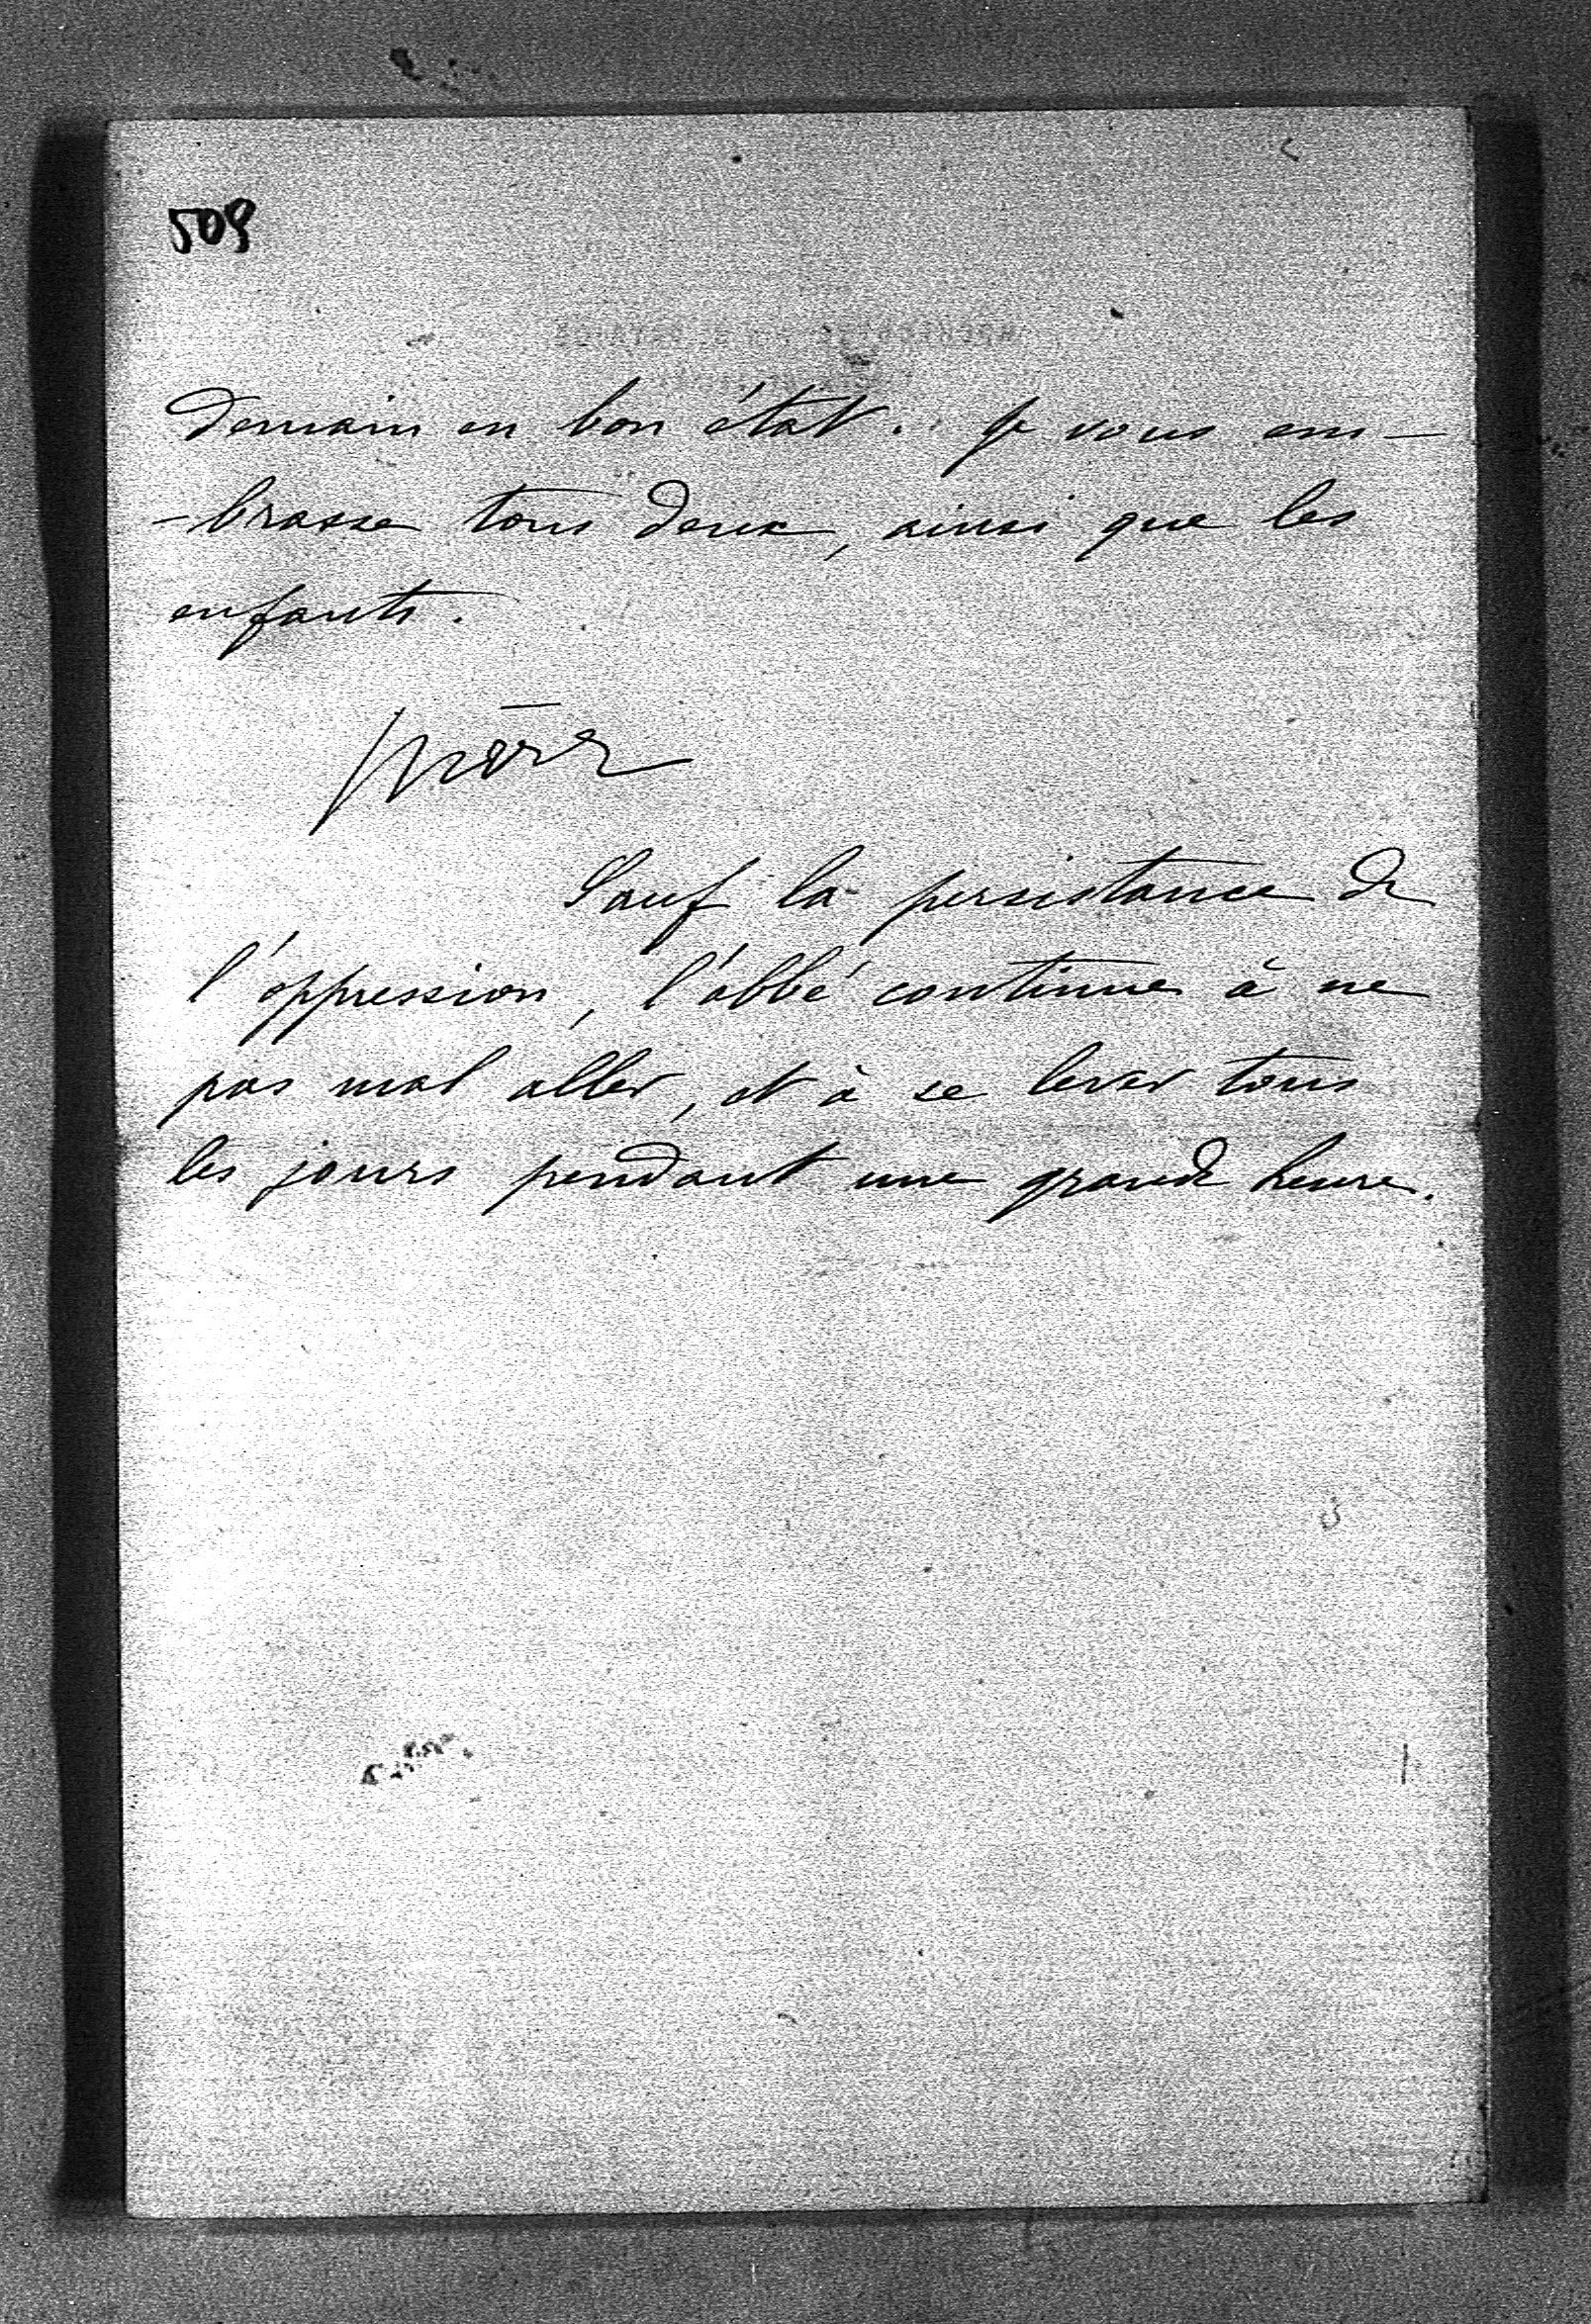 509
demain en bon état. Je vous em-
-brasse tous deux, ainsi que les
enfants.
Sauf la persistance de
l'oppression, l'abbé continue à ne
pas mal aller, et à se lever tous
les jours pendant une grande heure.